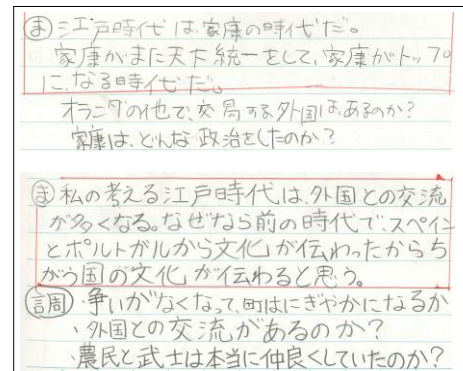 ま 江戸時代は、家康の時代だ。
家康がまた天下統一をして、家康がトップ
に、なる時代だ。
オランダの他で、交易する外国は、あるのか？
家康は、どんな政治をしたのか？
ま 私の考える江戸時代は、外国との交流
が多くなる。なぜなら前の時代で、スペイン
とポルトガルから文化が伝わったからち
がう国の文化が伝わると思う。
調 ・争いがなくなって、町はにぎやかになるか
・外国との交流があるのか？
・農民と武士は本当に仲良くしていたのか？